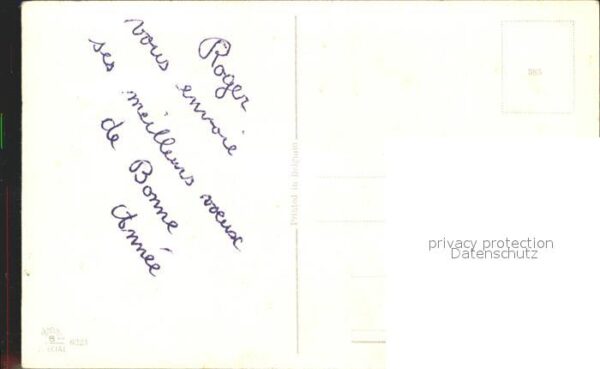 Roger
vous envoie
ses meilleurs voeux
de Bonne
Année
Printed in Belgium
585
privacy protection
Datenschutz